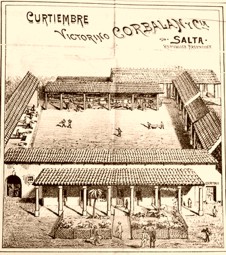 CURTIEMBRE
VICTORINO CORBALAN Y CIA
DE SALTA
REPUBLICA ARGENTINA